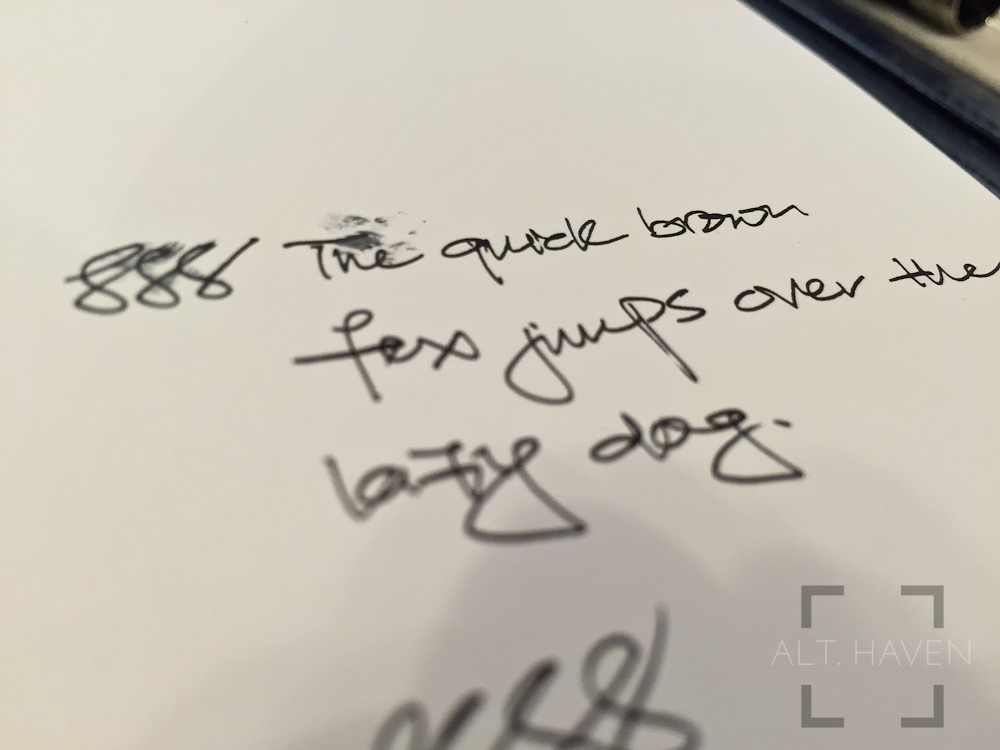 888 The quick brown
fox jumps over the
lazy dog.
888
ALT. HAVEN